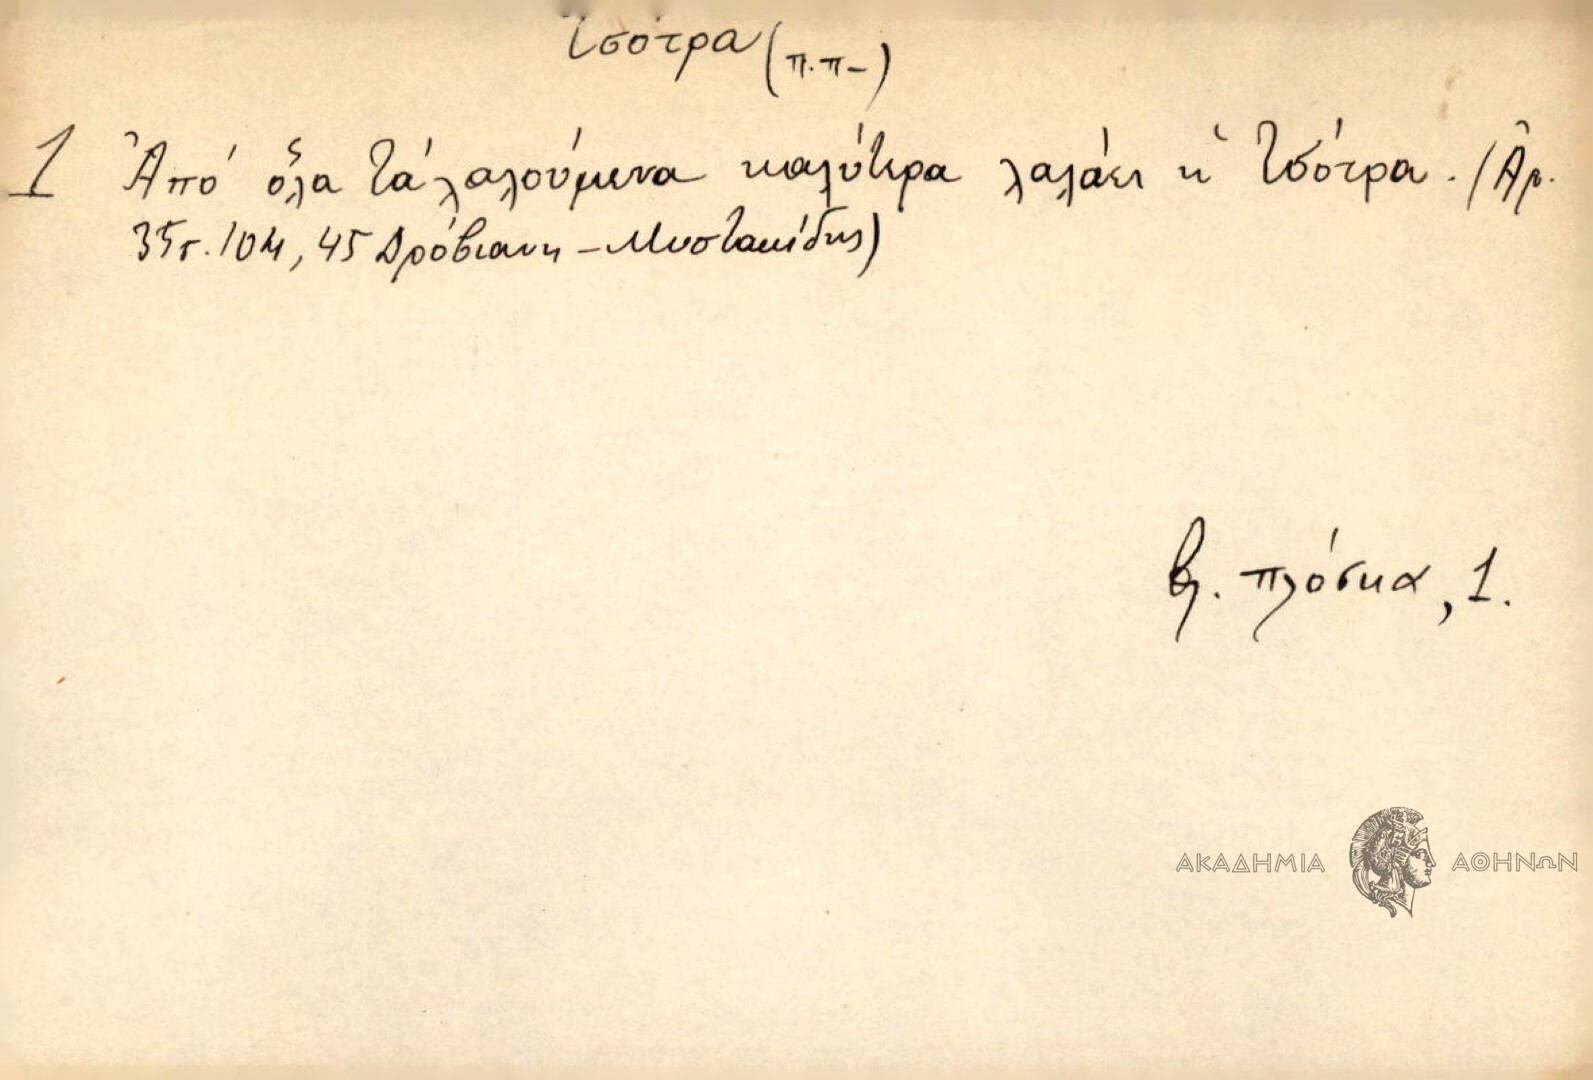 τσότρα (π.π-)
1 Ἀπό ὅλα τά λαλούμενα καλύτερα λαλάει ἡ τσότρα. (Ἀρ.
35 σ. 104, 45 Δρόβιανη - Μυστακίδης)
βλ. πλόσκα, 1.
ΑΚΑΔΗΜΙΑ ΑΘΗΝΩΝ